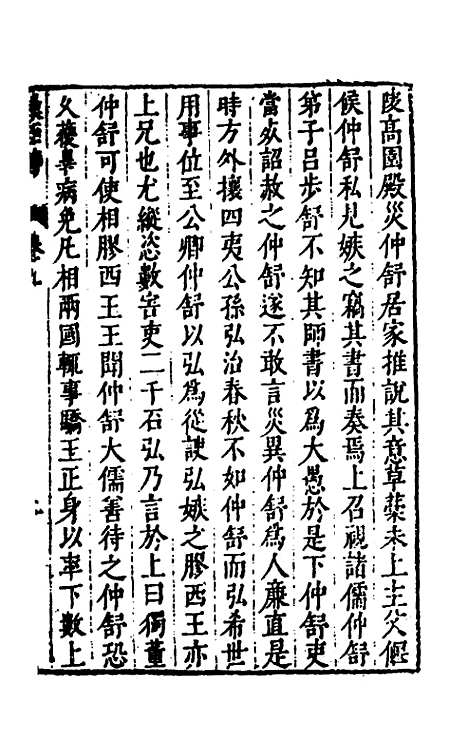 陵高園殿災仲舒居家推說其意草藳未上主父偃
候仲舒私見嫉之竊其書而奏焉上召視諸儒仲舒
第子呂步舒不知其師書以為大愚於是下仲舒吏
當死詔赦之仲舒遂不敢言災異仲舒為人廉直是
時方外攘四夷公孫弘治春秋不如仲舒而弘希世
用事位至公卿仲舒以弘為從諛弘嫉之膠西王亦
上兄也尤縱恣數害吏二千石弘乃言於上曰獨董
仲舒可使相膠西王王聞仲舒大儒善待之仲舒恐
久獲辠病免凡相兩國輒事驕王正身以率下數上
卷九